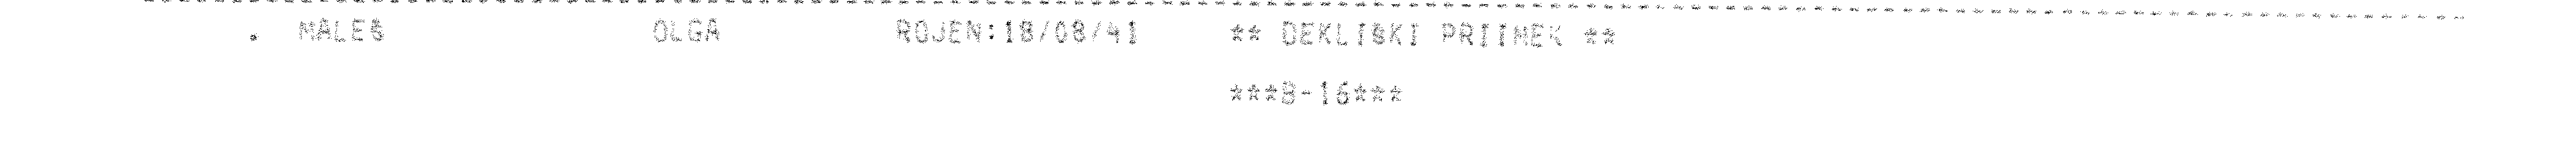 . MALEŠ OLGA ROJEN:18/08/41 ** DEKLIŠKI PRIIMEK **
***B-16***